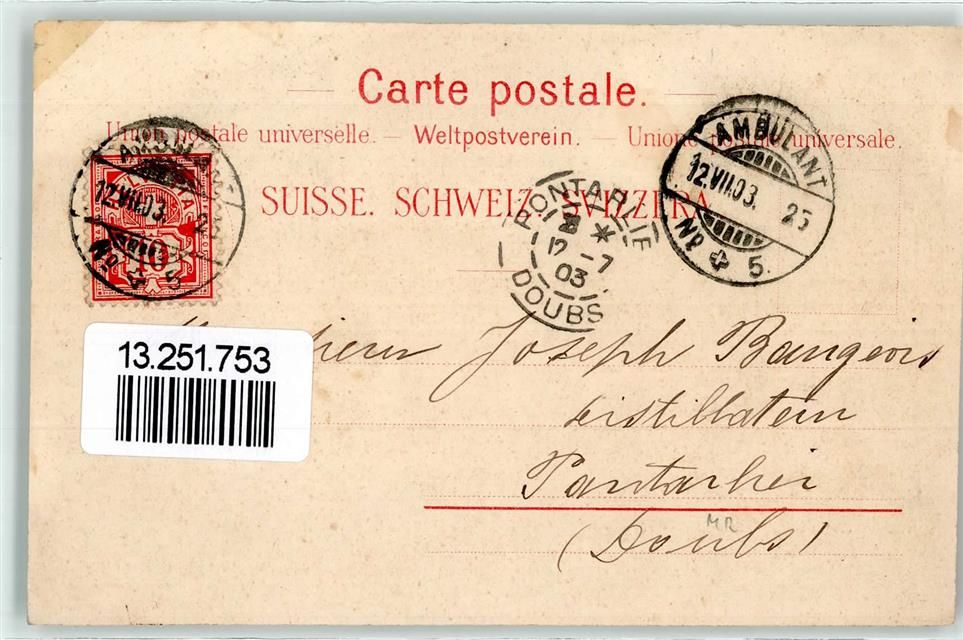 Carte postale.
Union postale universelle. — Weltpostverein. — Unione postale universale.
SUISSE. SCHWEIZ. SVIZZERA.
AMBULANT
12.VII.03.
No 5
10
PONTARLIER
12 -7
03
DOUBS
AMBULANT
12.VII.03. 25
No 5.
13.251.753
Joseph Bangeois
distillateur
Pontarlier
(Doubs)
MR